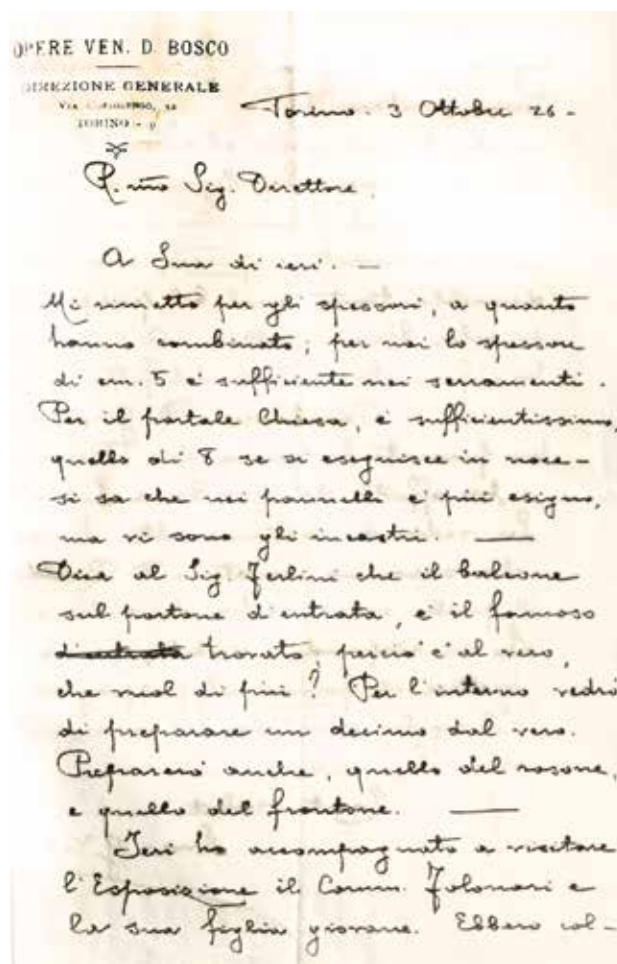 OPERE VEN. D. BOSCO
DIREZIONE GENERALE
VIA COTTOLENGO, 32
TORINO - 9
Torino. 3 Ottobre 26 -
R.mo Sig. Direttore.
A Sua di ieri. —
Mi rimetto per gli spessori, a quanto
hanno combinato; per noi lo spessore
di cm. 5 è sufficiente nei serramenti.
Per il portale Chiesa, è sufficientissimo,
quello di 8 se si eseguisce in noce -
si sa che nei pannelli è più esiguo,
ma vi sono gli incastri. —
Dica al Sig. Ferlini che il balcone
sul portone d'entrata, è il famoso
d'entrata trovato, perciò è al vero,
che vuol di più? Per l'interno vedrò
di preparare un decimo dal vero.
Preparerò anche, quello del rosone,
e quello del frontone. —
Ieri ho accompagnato a visitare
l'Esposizione il Comm. Folonari e
la sua figlia giovane. Ebbero col-